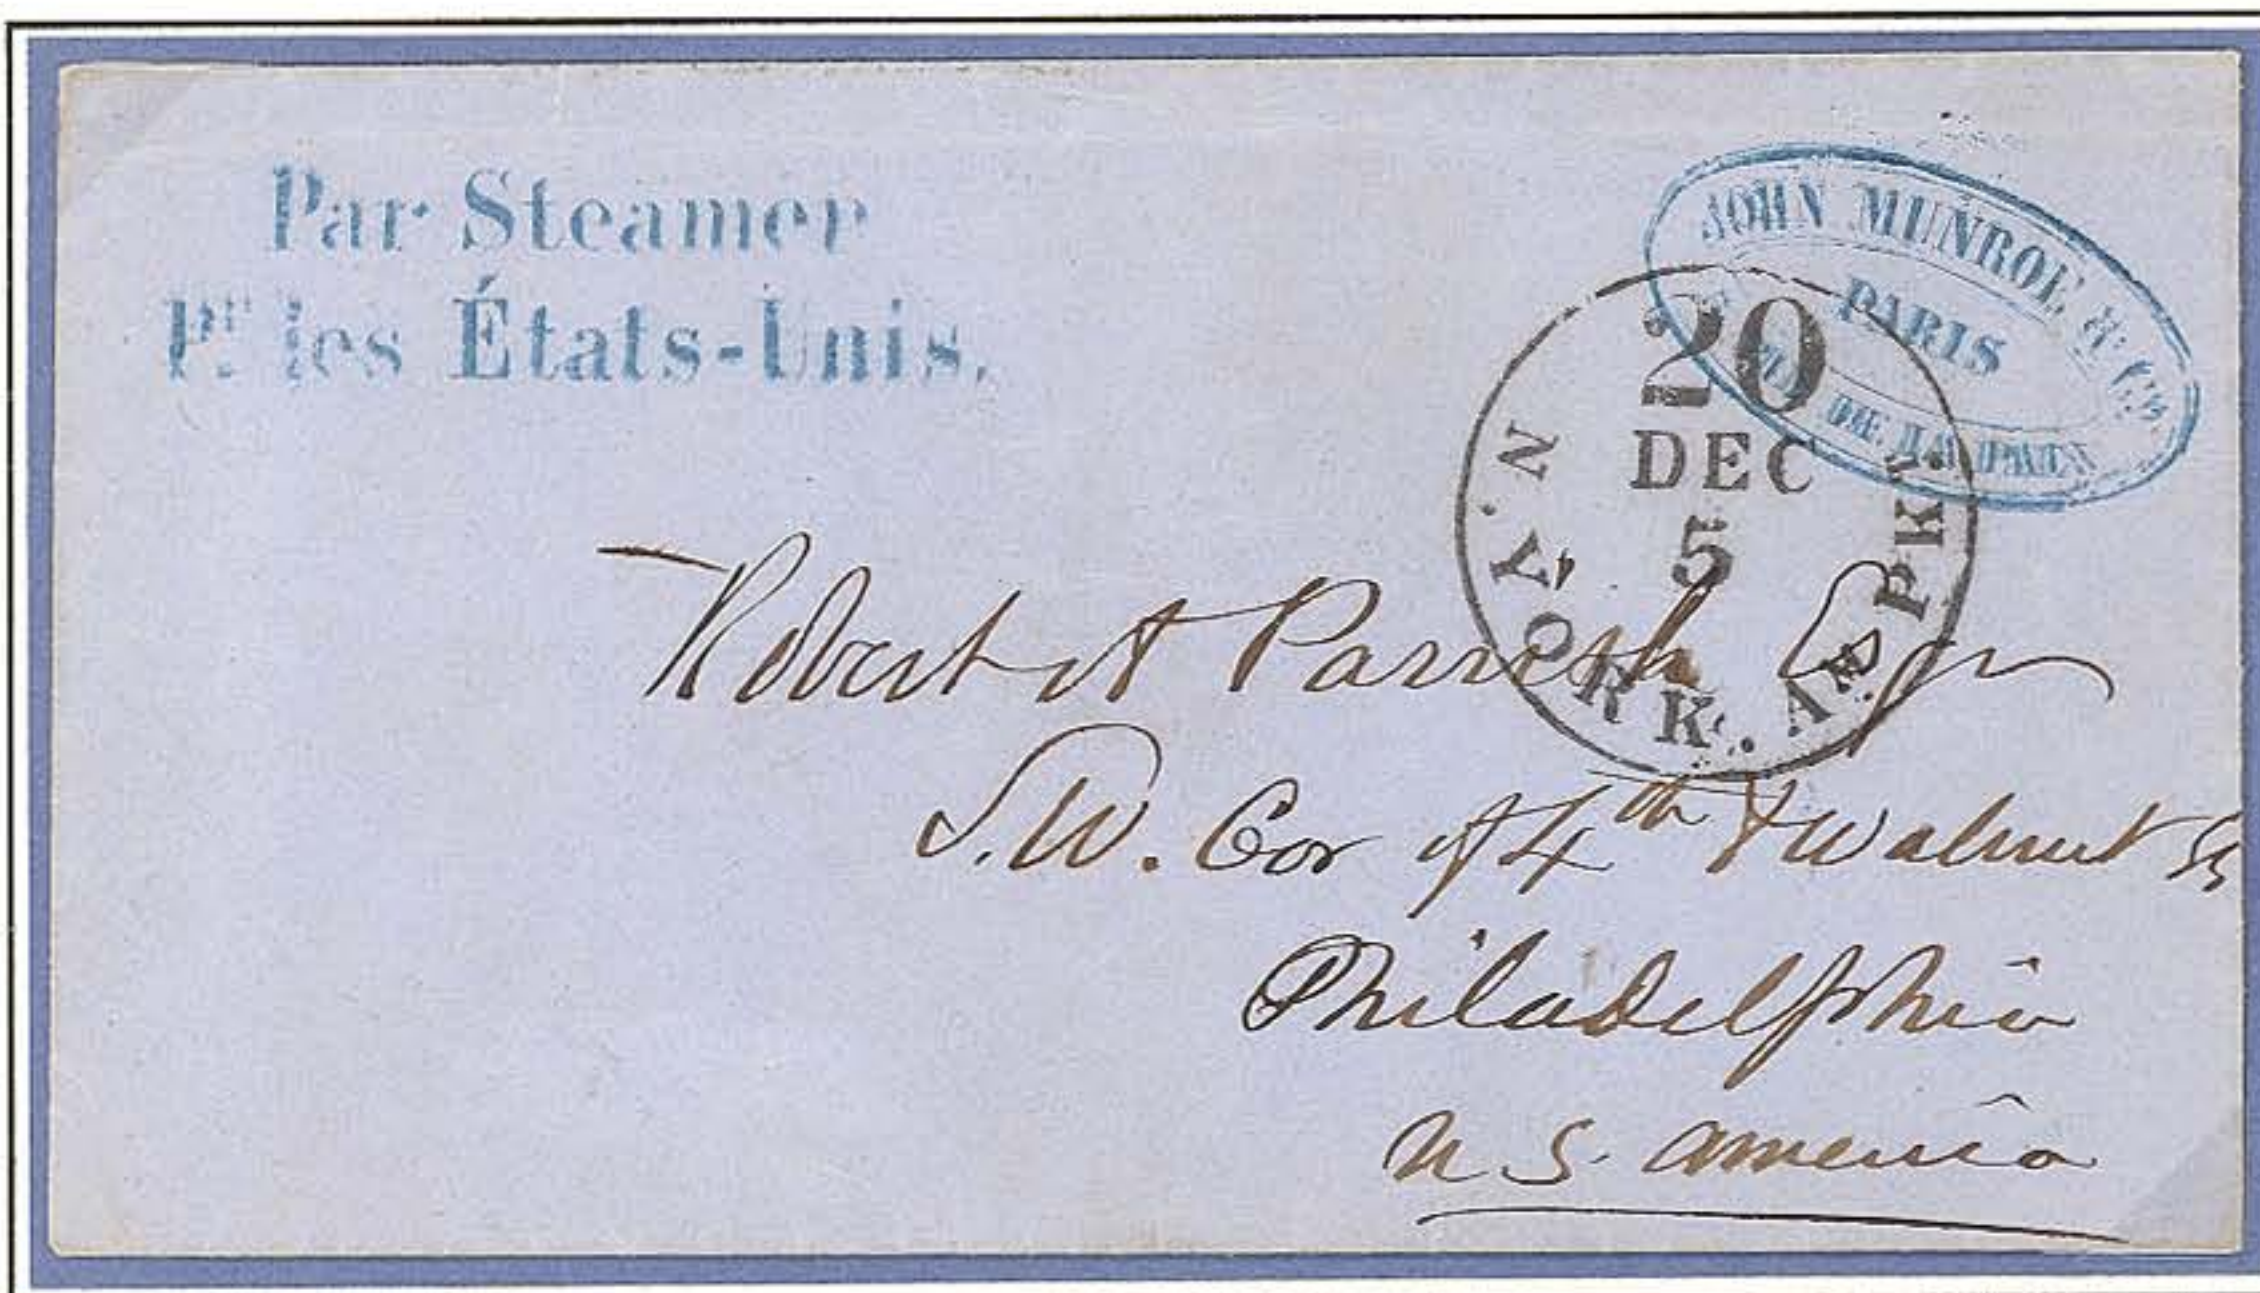 Par Steamer
Pr. les États-Unis.
JOHN MUNROE & Co.
PARIS
DE LA PAIX
20
DEC
5
N. YORK. AM PKT.
Robert A Parrish Jr
S.W. Cor of 4th & Walnut St
Philadelphia
U S. America